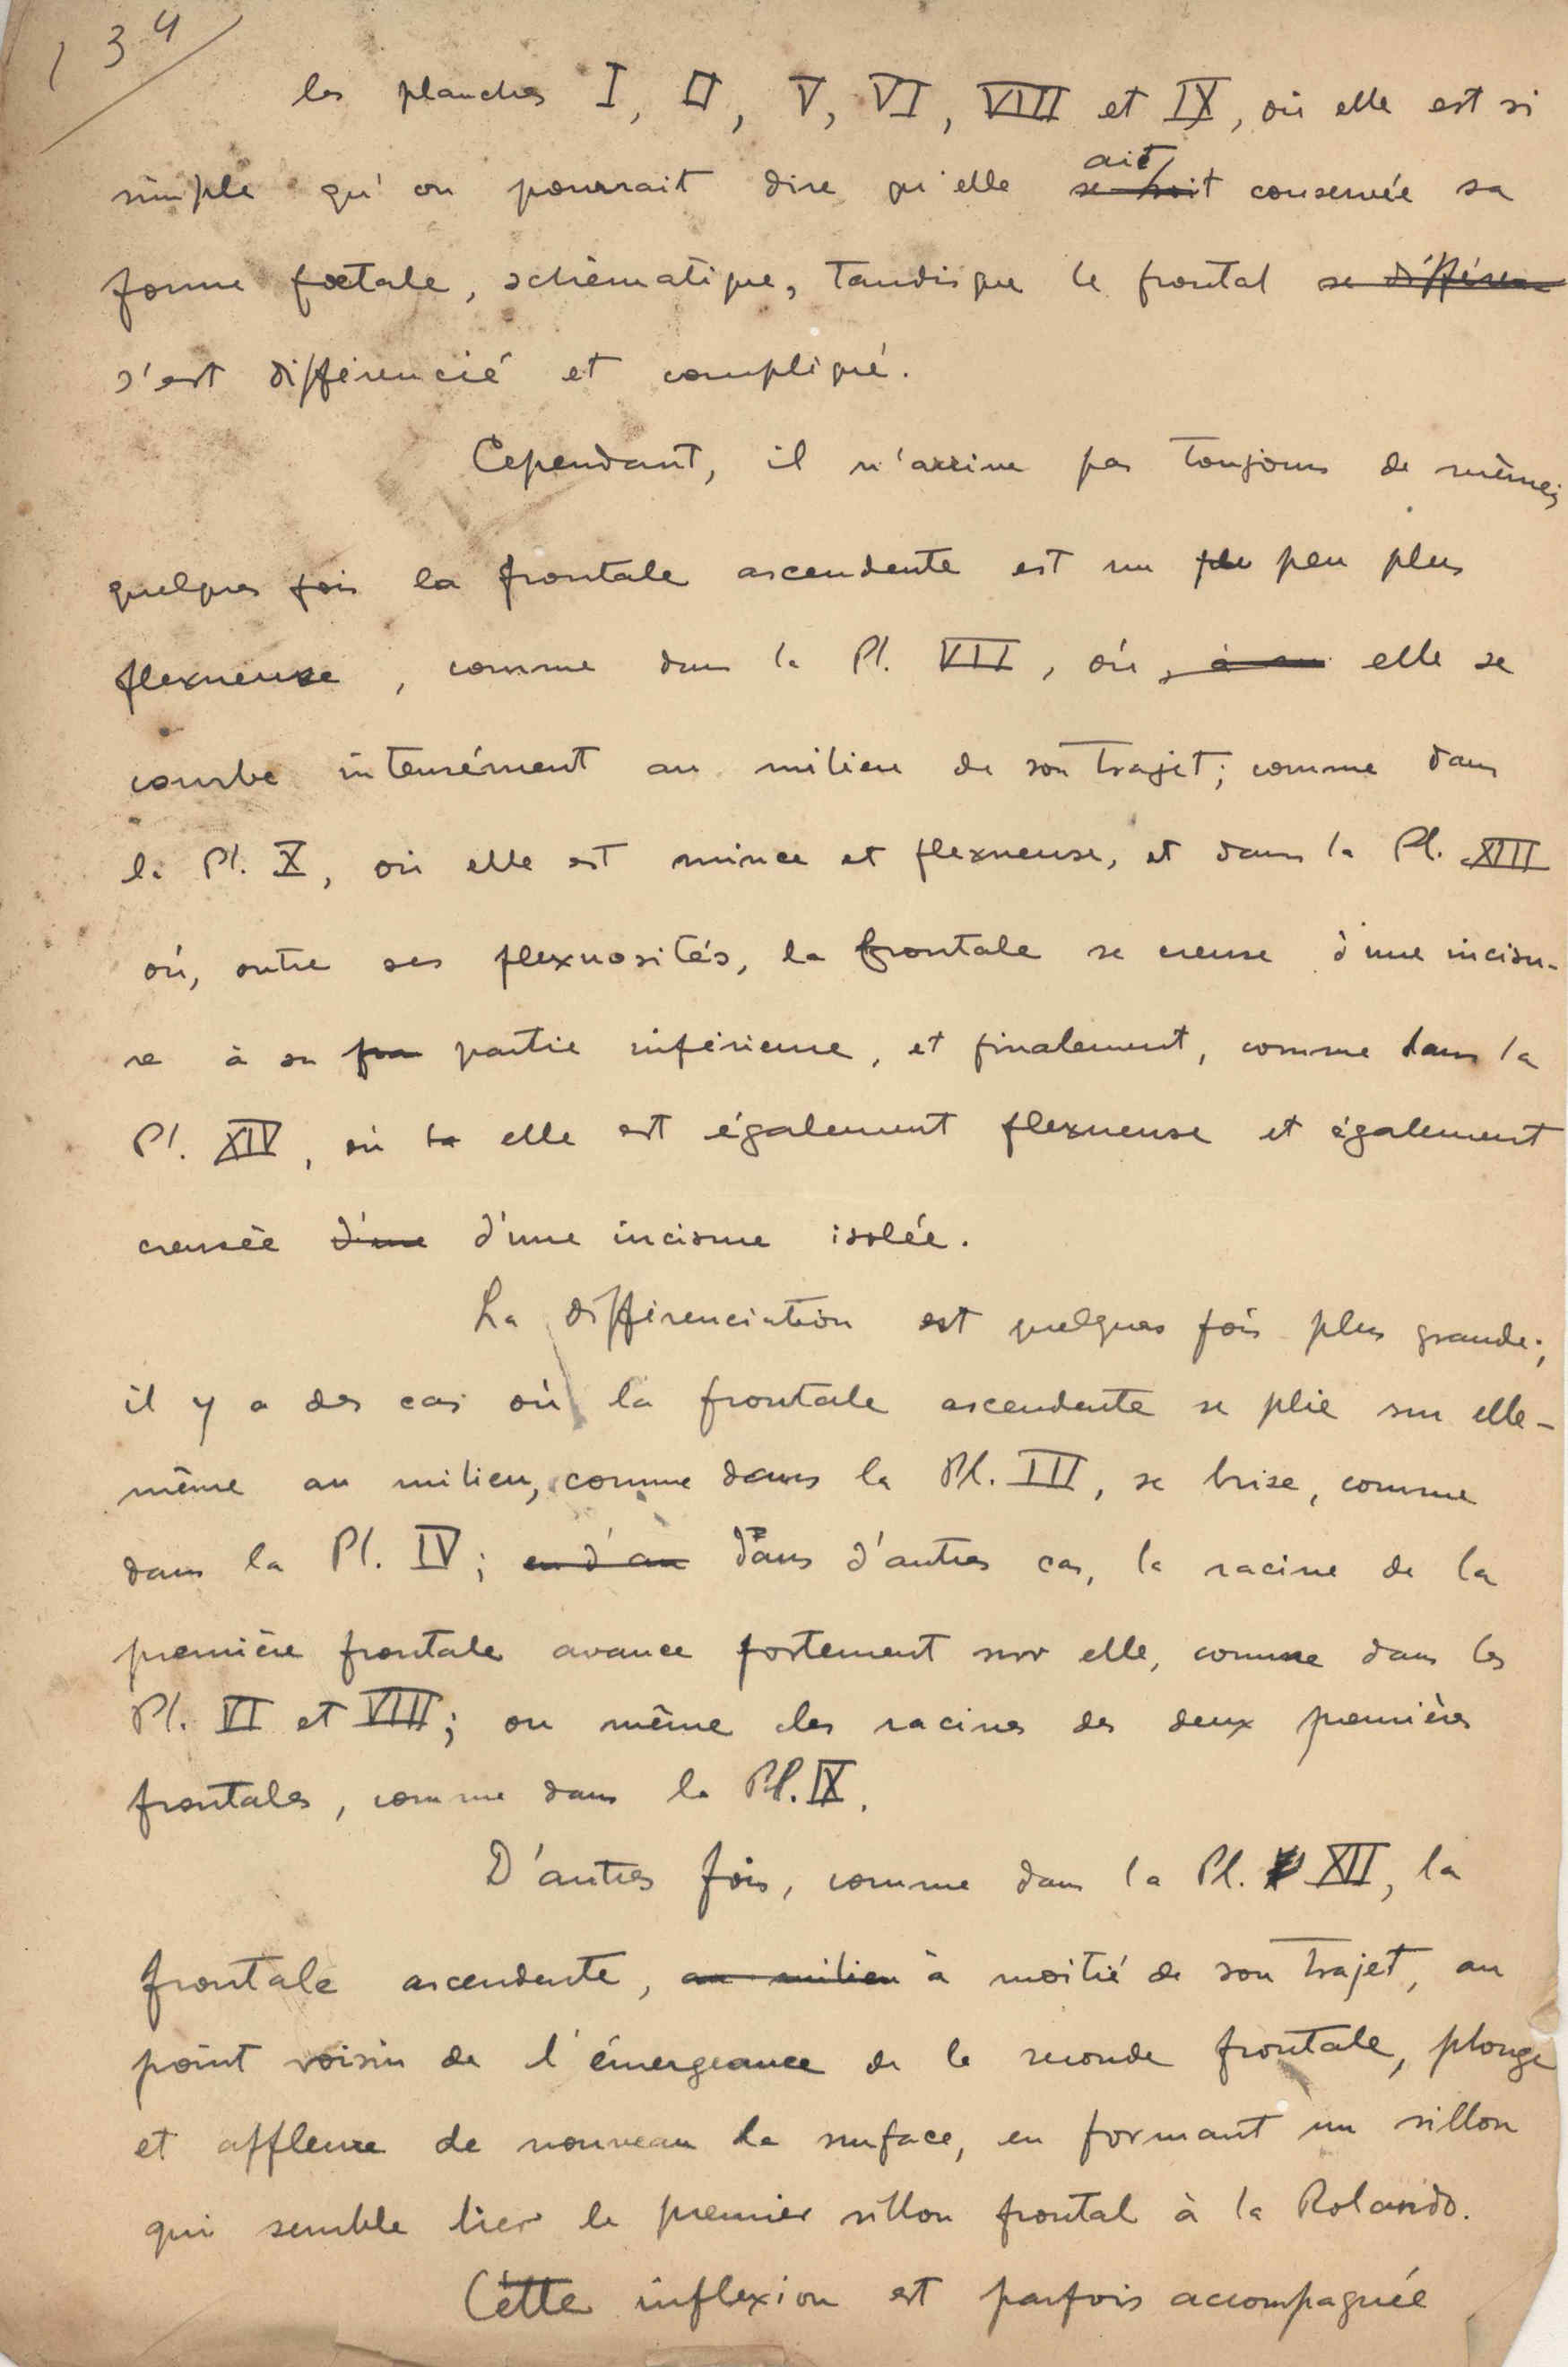 134
les planches I, II, V, VI, VIII et IX, où elle est si
ait
simple qu'on pourrait dire qu'elle se soit conservée sa
forme fœtale, schèmatique, tandis que le frontal se différen
s'est différencié et compliqué.
Cependant, il n'arrive pas toujours de même;
quelques fois la frontale ascendente est un plu peu plus
flexueuse, comme dans la Pl. VII, où, à son elle se
courbe intensément au milieu de son trajet; comme dans
la Pl. X, où elle est mince et flexueuse, et dans la Pl. XIII
où, outre ses flexuosités, la frontale se creuse d'une incisu-
re à sa partie inférieure, et finalement, comme dans la
Pl. XIV, où la elle est également flexueuse et également
creusée d'une d'une incisure isolée.
La différenciation est quelques fois plus grande;
il y a des cas où la frontale ascendente se plie sur elle-
même au milieu, comme dans la Pl. III, se brise, comme
dans la Pl. IV; en d'au dans d'autres cas, la racine de la
première frontale avance fortement sur elle, comme dans les
Pl. VI et VIII; ou même les racines des deux premières
frontales, comme dans la Pl. IX.
D'autres fois, comme dans la Pl. XII, la
frontale ascendente, au milieu à moitié de son trajet, au
point voisin de l'émergeance de la seconde frontale, plonge
et affleure de nouveau la surface, en formant un sillon
qui semble lier le premier sillon frontal à la Rolando.
Cette inflexion est parfois accompagnée